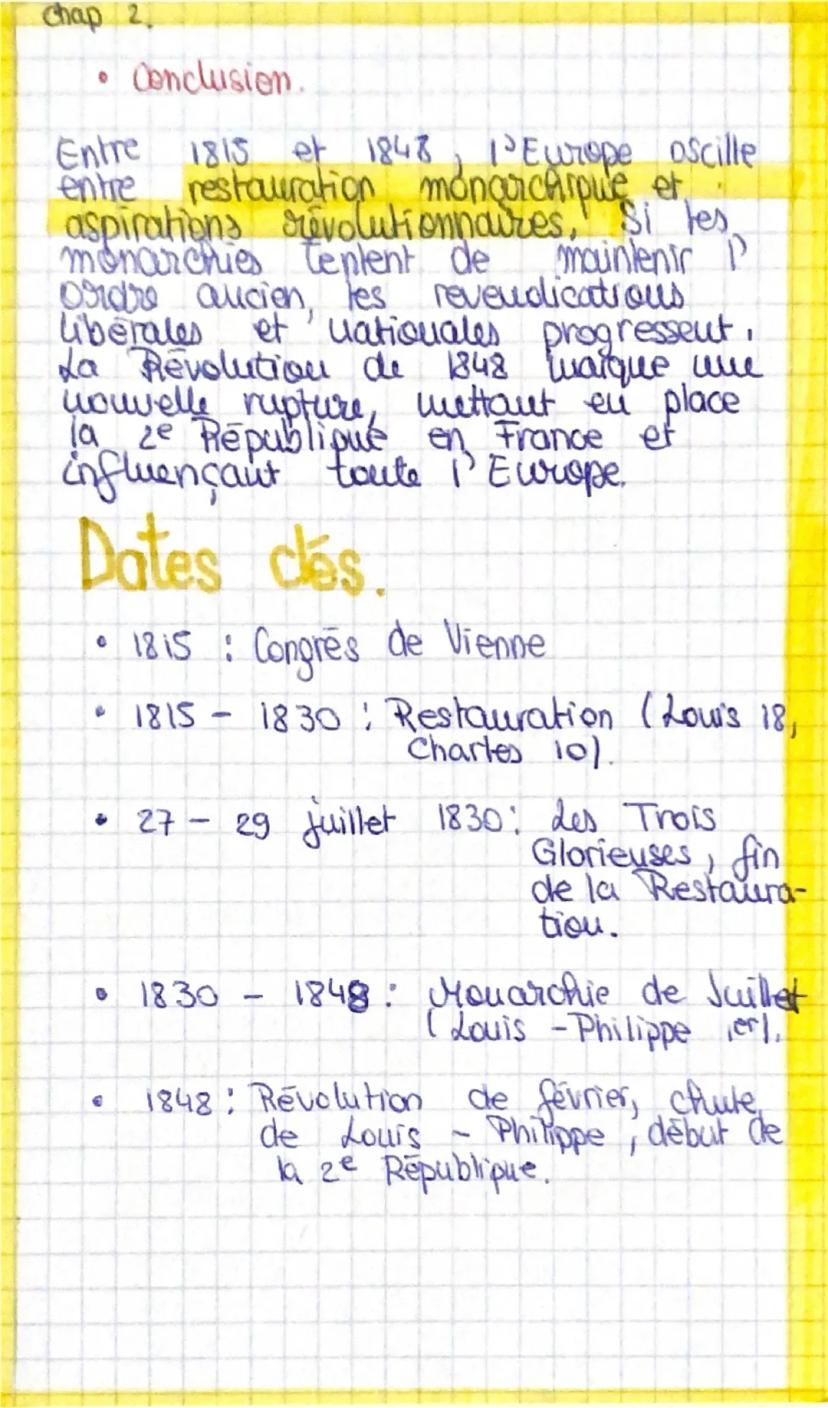 Chap 2.
• Conclusion.
Entre 1815 et 1848, l'Europe oscille
entre restauration monarchique et
aspirations révolutionnaires. Si les
monarchies tentent de maintenir l'
ordre ancien, les revendications
libérales et nationales progressent.
La Révolution de 1848 marque une
nouvelle rupture, mettant en place
la 2e République en France et
influençant toute l'Europe.
Dates clés.
• 1815 : Congrès de Vienne
• 1815 - 1830 : Restauration (Louis 18,
Charles 10).
• 27 - 29 juillet 1830 : Les Trois
Glorieuses, fin
de la Restaura-
tion.
• 1830 - 1848 : Monarchie de Juillet
(Louis - Philippe 1er).
• 1848 : Révolution de février, chute
de Louis - Philippe, début de
la 2e République.